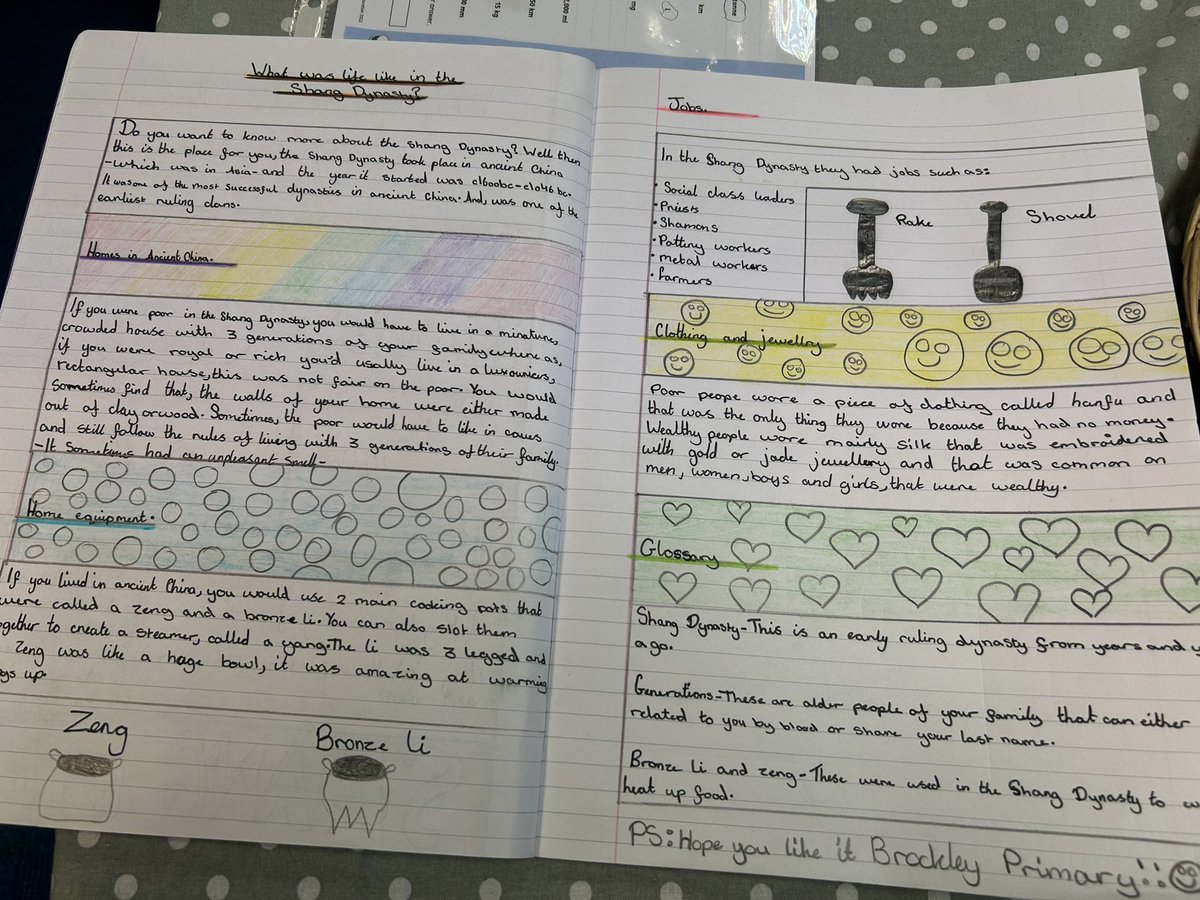 What was life like in the
Shang Dynasty?
Do you want to know more about the Shang Dynasty? Well then
this is the place for you, the Shang Dynasty took place in ancient China
-which was in Asia- and the year it started was c1600bc-c1046 bc.
It was one of the most successful dynasties in ancient China. And, was one of the
earliest ruling clans.
Homes in Ancient China.
If you were poor in the Shang Dynasty, you would have to live in a minature,
crowded house with 3 generations of your family where as,
if you were royal or rich you'd usally live in a luxouriers,
rectangular house, this was not fair on the poor. You would
Sometimes find that, the walls of your home were either made
out of clay or wood. Sometimes, the poor would have to like in caves
and still follow the rules of living with 3 generations of their family.
-It Sometimes had an unpleasant smell-
Home equipment.
If you lived in ancient China, you would use 2 main cooking pots that
were called a zeng and a bronze li. You can also slot them
ogether to create a steamer, called a yang. The li was 3 legged and
Zeng was like a hage bowl, it was amazing at warming
gs up.
Zeng
Bronze li
Jobs.
In the Shang Dynasty they had jobs such as:
• Social class leaders
• Priests
• Shamons
• Pottery workers
• metal workers
• Farmers
Rake
Shovel
Clothing and jewellry
Poor peope wore a piece of clothing called hanfu and
that was the only thing they wore because they had no money.
Wealthy people wore mainly silk that was embroidered
with gold or jade jewellery and that was common on
men, women, boys and girls, that were wealthy.
Glossary
Shang Dynasty-This is an early ruling dynasty from years and y
ago.
Generations-These are older people of your family that can either
related to you by blood or share your last name.
Bronze li and zeng- These were used in the Shang Dynasty to w
heat up food.
PS: Hope you like it Brockley Primary!